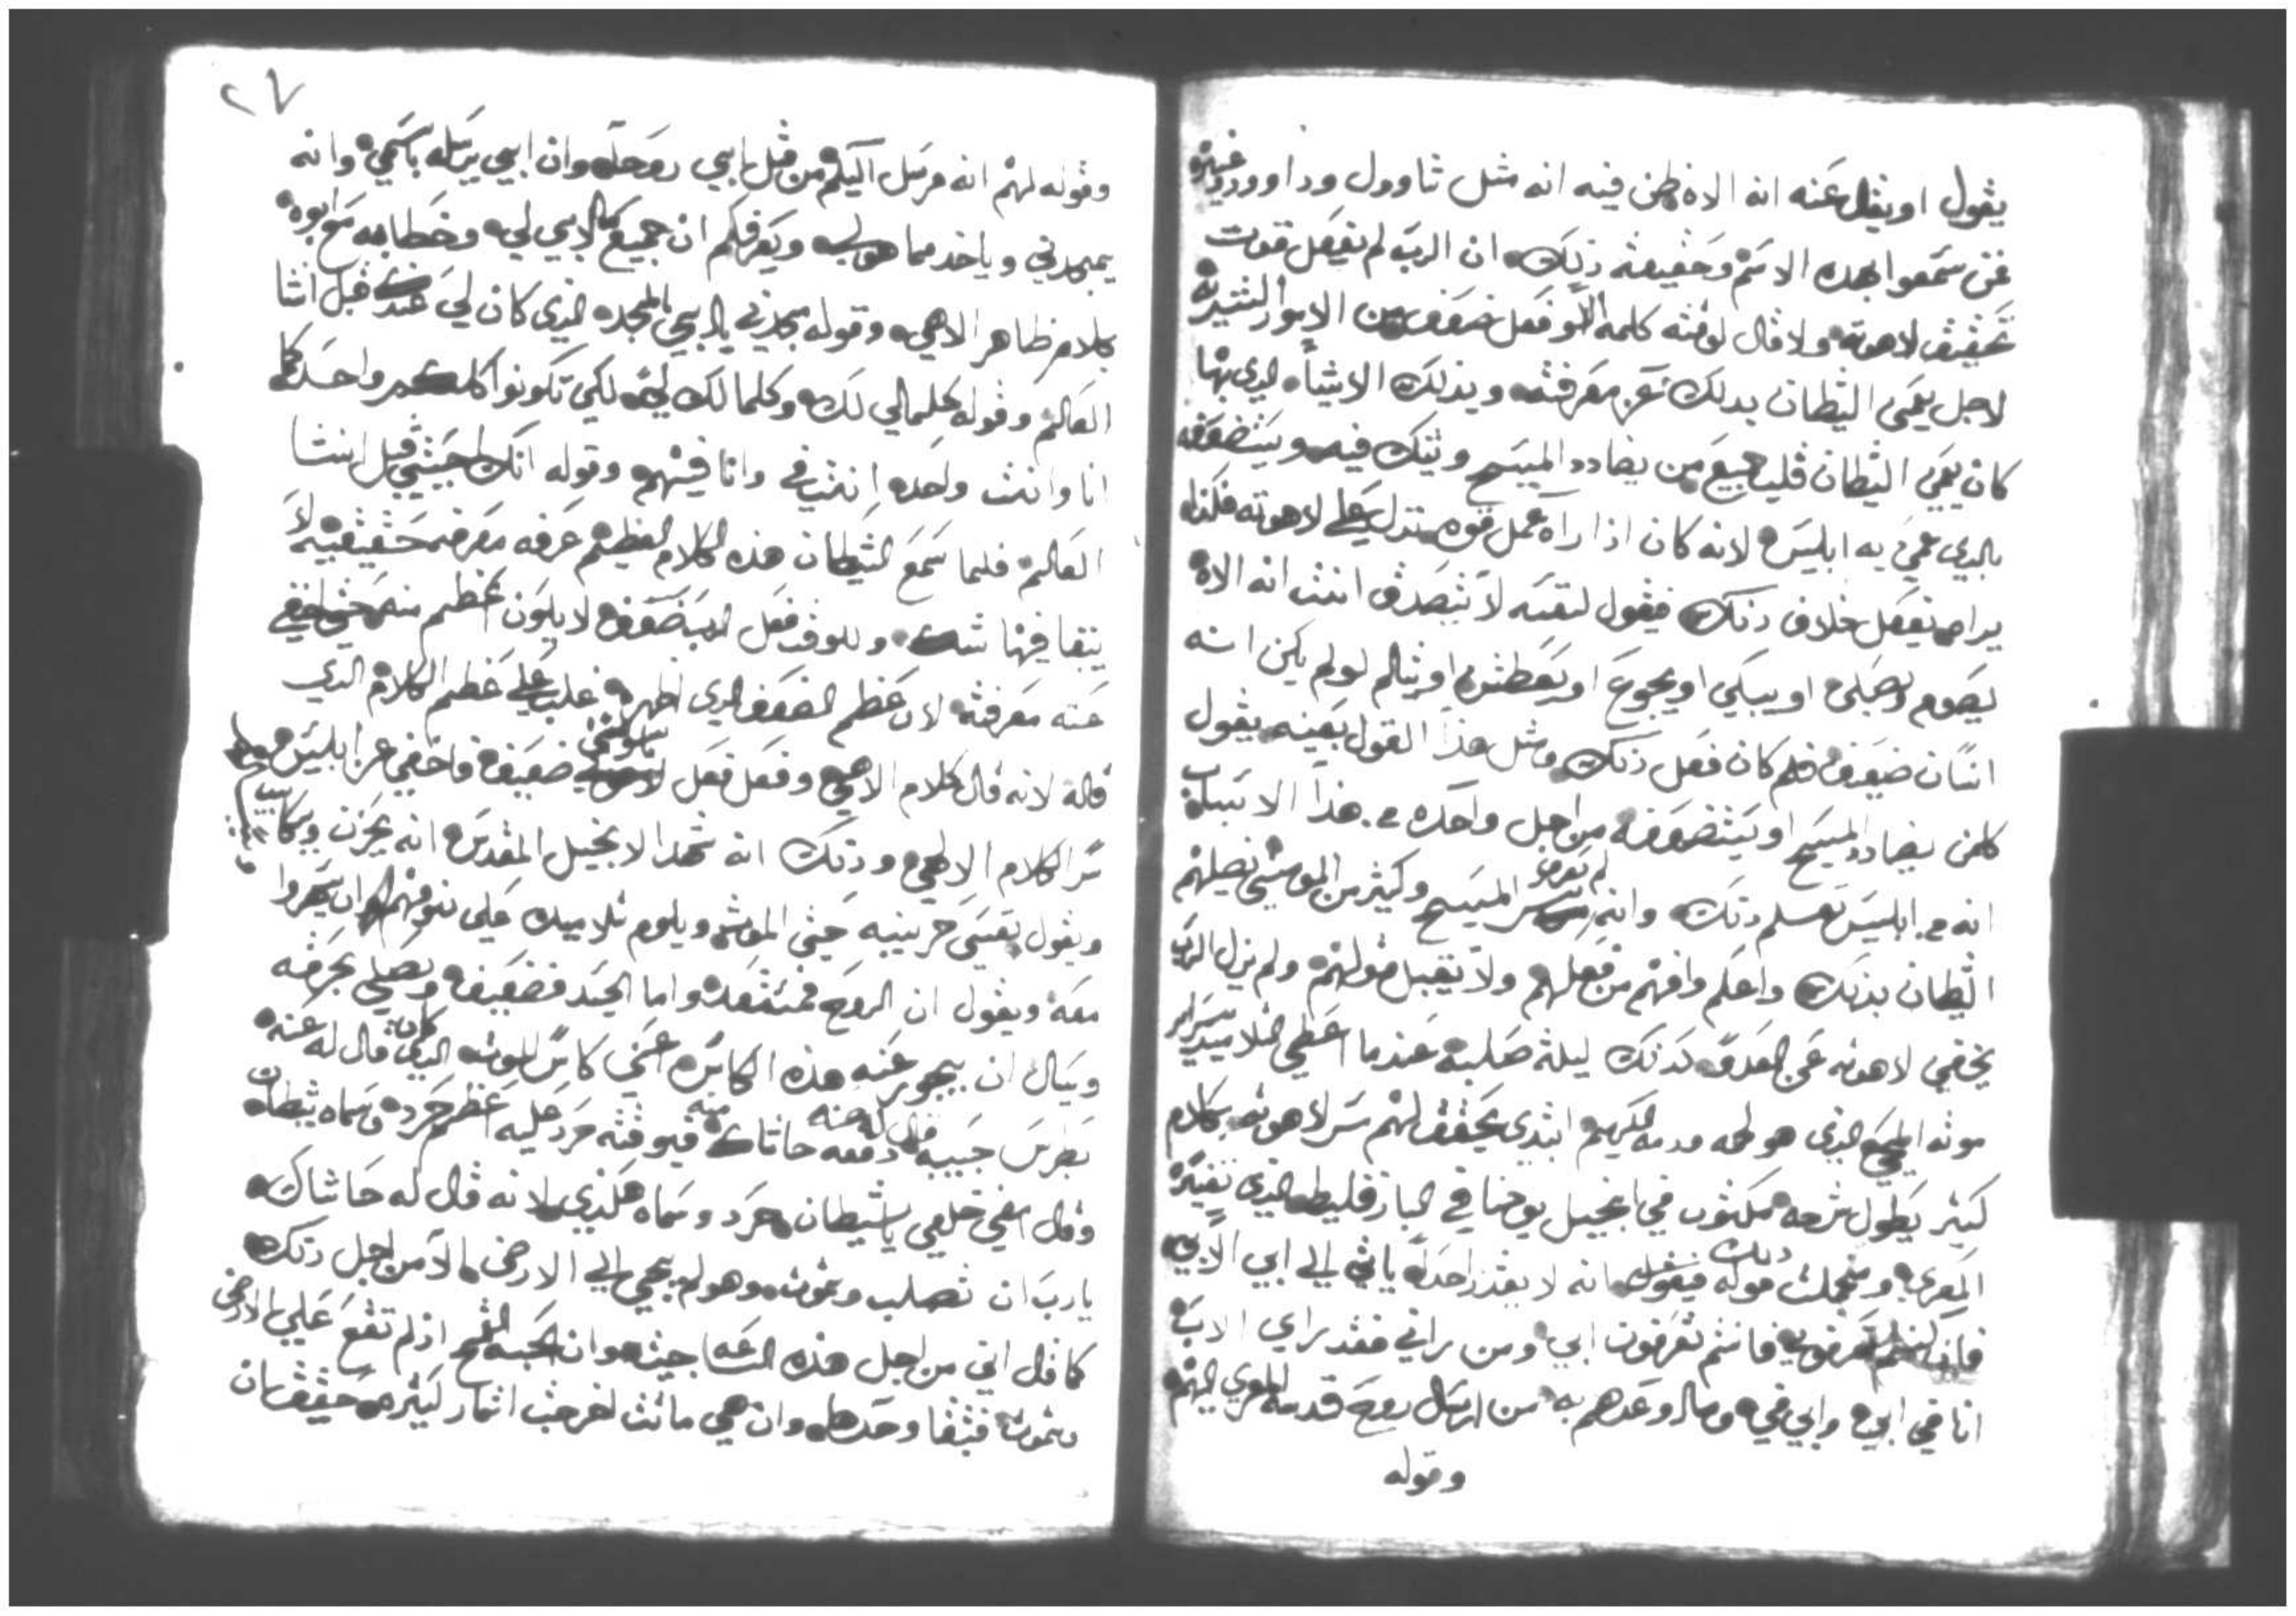 يقول او يقل عنه انه الاه ظن فيه انه مثل شاوول وداوود وغيره
من سمعوا بهده الاسم وحقيقه ذلك ان الرب لم يفعل قوت
تحقيق لاهوته ولا قال لوقته كلمه الا وفعل ضعف من الامور البشريه
لاجل يعمى الشطان بدلك عن معرفته وبذلك الاشياه الدي بها
كان يعمي الشطان قلب جميع من يضادد المسيح ويشك فيه ويستضعفه
بالدي عمي به ابليس لانه كان اذا راه عمل قوه تدل على لاهوته هكذا
يراه يفعل خلاف ذلك فيقول لنفسه لا تصدق انت انه الاه
يصوم ويصلى او يبكي او يجوع او يعطش او يتالم لو لم يكن انه
انسان ضعيف فلم كان فعل ذلك ومثل هذا القول بعينه يقول
كلمن يضادد المسيح او يستضعفه من اجل واحده من هذا الاسباب
انه من ابليس تعلم ذلك وانه لم يعرف سر المسيح وكثير من المومنين يضلهم
الشطان بذلك واعلم وافهم من فعلهم ولا تقبل قولهم ولم يزل الرب
يخفي لاهوته عن العدو كذلك ليلة صلبه عندما اعطى التلاميد سراير
موته المحيي الذي هو لحمه ودمه الكريم ابتدى يحقق لهم سر لاهوته بكلام
كثير يطول شرحه مكتوب في انجيل يوحنا في البارقليط الذي تفسيره
المعزي ومن جملت ذلك قوله فيقول انه لا يقدر احد ياتي الي ابي الا بي
فان كنتم تعرفوني فانتم تعرفون ابي ومن راني فقد راي الاب
انا في ابي وابي في وما وعدهم به من ارسال روح قدسه المعزي اليهم
وقوله
٢٧
وقوله لهم انه مرسل اليكم من قبل ابي روحه وان ابي يرسله باسمي وانه
يمجدني وياخد مما هو لي ويعرفكم ان جميع ما لابي لي وخطابه مع ابوه
بكلام ظاهر الاهي وقوله مجدني يا ابي بالمجد الذي كان لي عندك قبل انشا
العالم وقوله كلما لي لك وكلما لك لي لكي تكونوا كلكم واحد كما
انا وانت واحد انت في وانا فيهم وقوله انك احببتني قبل انشا
العالم فلما سمع الشيطان هذه الكلام العظيم عرفه معرفه حقيقيه لا
يبقا فيها شك وللوقت فعل الرب ضعف لا يكون اعظم منه حتى اخفي
عنه معرفته لان عظم الضعف الدي اظهره غلب على عظم الكلام الدي
قاله لانه قال كلام الاهي وفعل فعل ناسوتي ضعيف واخفي عن ابليس
سر الكلام الالهي وذلك انه شهدا الانجيل المقدس انه يحزن ويكتيب
ويقول نفسي حزينه حتى الموت ويلوم تلاميده على نومهم ان يسهروا
معه ويقول ان الروح مستعده واما الجسد فضعيف ويصلي بحرقه
ويسال ان يجوز عنه هذه الكاس اعني كاس الموت الدي كان قال له عنه
بطرس حبيبه دفعه حاشاك منه فبوقته حرد عليه اعظم حرده وسماه شيطان
وقال امضي خلفي يا شيطان حرد وسماه هكذي لانه قال له حاشاك
يا رب ان تصلب وتموت وهو لم يجي الي الارض الا من اجل ذلك
كما قال اني من اجل هذه الساعه جيت وان الحبه القمح اذ لم تقع على الارض
وتموت فتبقا وحدها وان هي ماتت اخرجت اثمار كثيره حقيقه ان